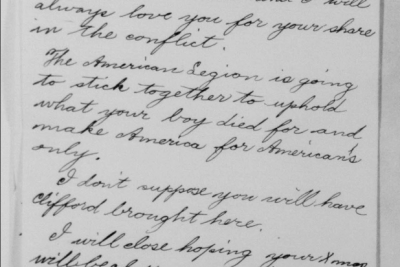 I will
always love you for your share
in the conflict.
The American Legion is going
to stick together to uphold
what your boy died for and
make America for American's
only.
I don't suppose you will have
Clifford brought here.
I will close hoping your Xmas
will be